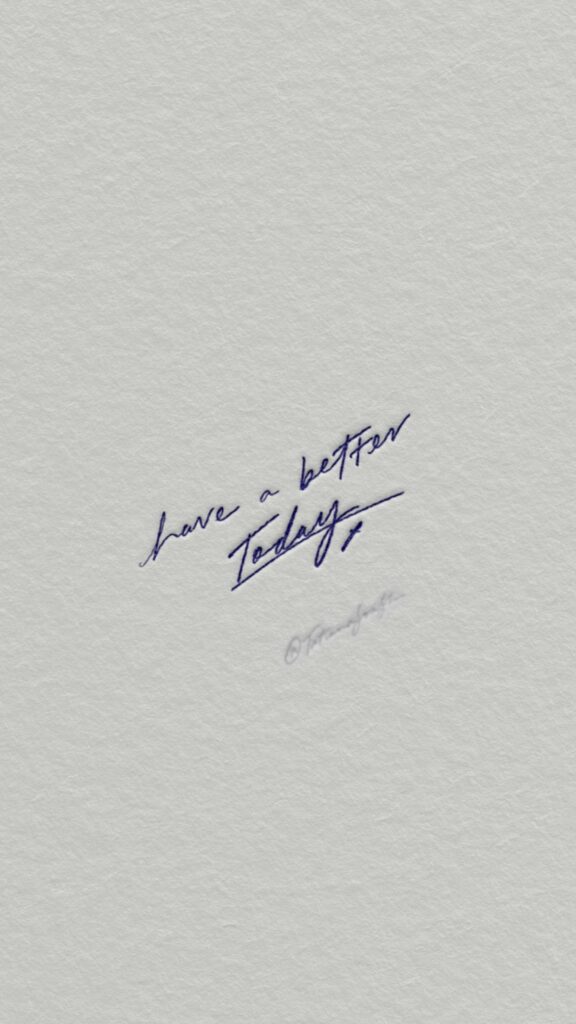 have a better
Today